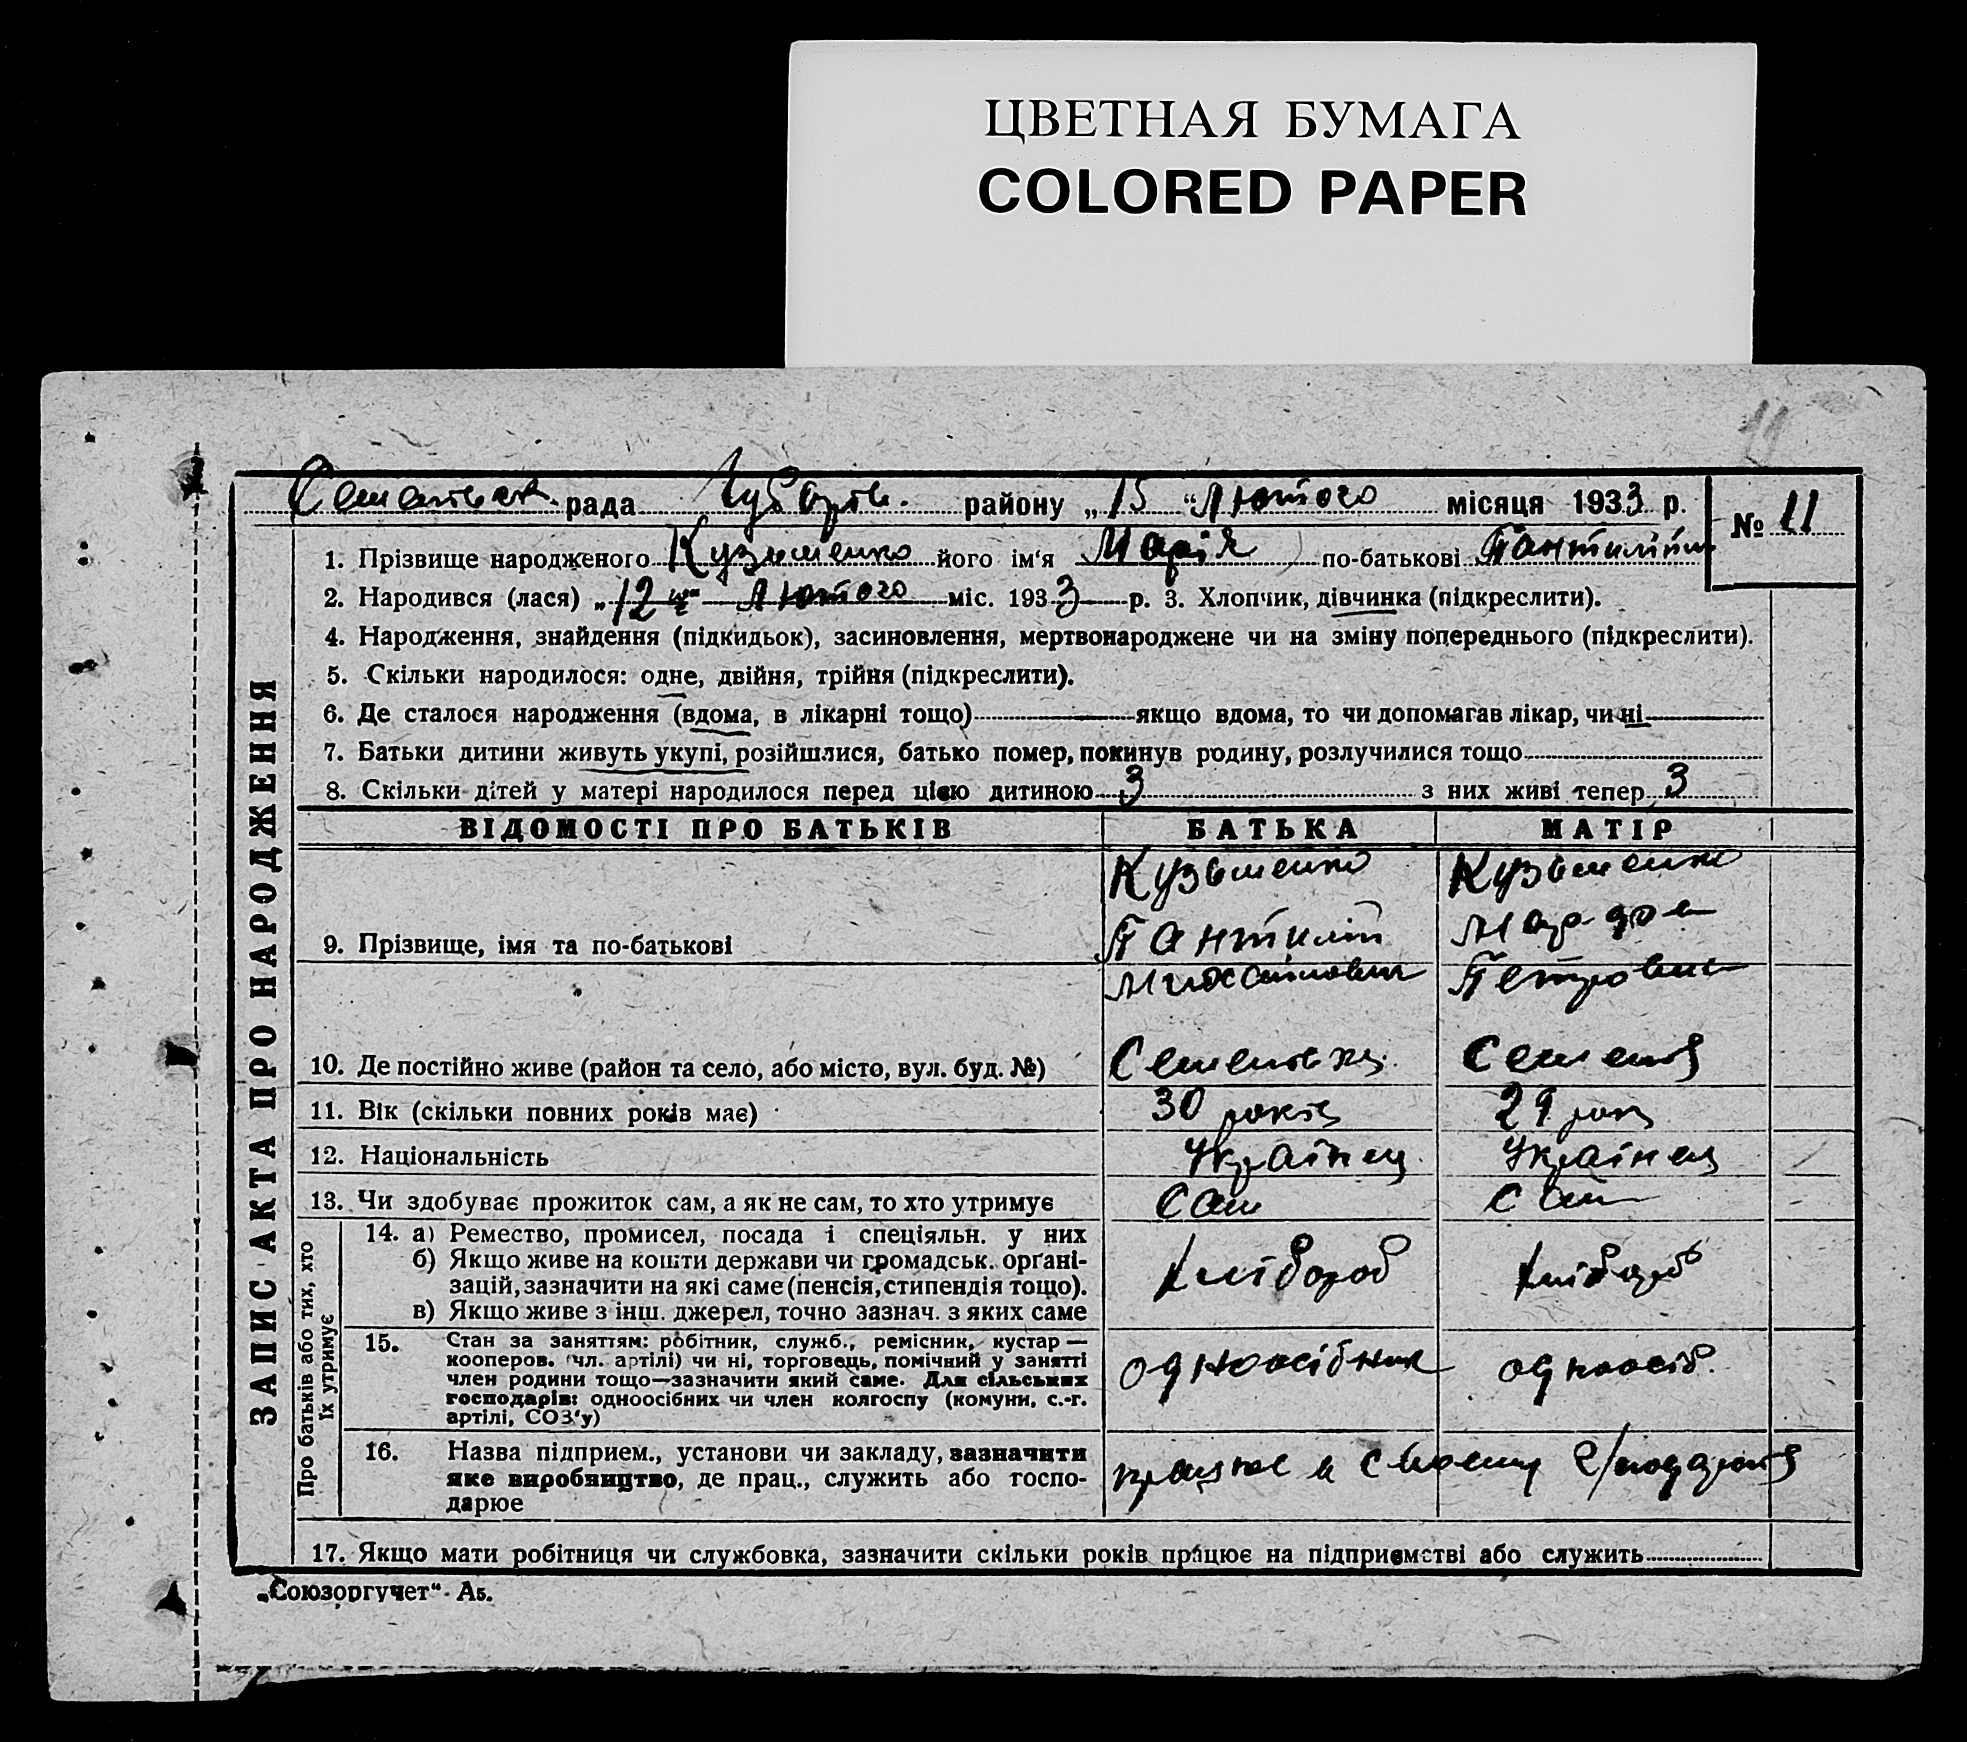 ЦВЕТНАЯ БУМАГА
COLORED PAPER
11
рада районy „15“ Лютого місяця 1933 р. № 11
1. Прізвище народженого Кузьменко його ім'я Марія по-батькові
2. Народився (лася) „12“ Лютого міс. 1933 р. 3. Хлопчик, дівчинка (підкреслити).
4. Народження, знайдення (підкидьок), засиновлення, мертвонароджене чи на зміну попереднього (підкреслити).
5. Скільки народилося: одне, двійня, трійня (підкреслити).
6. Де сталося народження (вдома, в лікарні тощо) якщо вдома, то чи допомагав лікар, чи ні
7. Батьки дитини живуть укупі, розійшлися, батько помер, покинув родину, розлучилися тощо
8. Скільки дітей у матері народилося перед цією дитиною 3 з них живі тепер 3
ЗАПИС АКТА ПРО НАРОДЖЕННЯ
ВІДОМОСТІ ПРО БАТЬКІВ БАТЬКА МАТІР
Кузьменко Кузьменко
9. Прізвище, імя та по-батькові
10. Де постійно живе (район та село, або місто, вул. буд. №)
11. Вік (скільки повних років має) 30 років 29 рок
12. Національність Українец Українец
13. Чи здобуває прожиток сам, а як не сам, то хто утримує сам сам
Про батьків або тих, хто їх утримує
14. а) Ремество, промисел, посада і спеціяльн. у них
б) Якщо живе на кошти держави чи громадськ. орґані-
зацій, зазначити на які саме (пенсія, стипендія тощо).
в) Якщо живе з інш. джерел, точно зазнач. з яких саме
Хлібороб Хлібороб
15. Стан за заняттям: робітник, служб., ремісник, кустар —
кооперов. (чл. артілі) чи ні, торговець, помічний у занятті
член родини тощо—зазначити який саме. Для сільських
господарів: одноосібних чи член колгоспу (комуни, с.-г.
артілі, СОЗ'у)
одноосібник одноосіб.
16. Назва підприєм., установи чи закладу, зазначити
яке виробництво, де прац., служить або госпо-
дарює
працює в своему
17. Якщо мати робітниця чи службовка, зазначити скільки років працює на підприємстві або служить
„Союзоргучет“ А5.